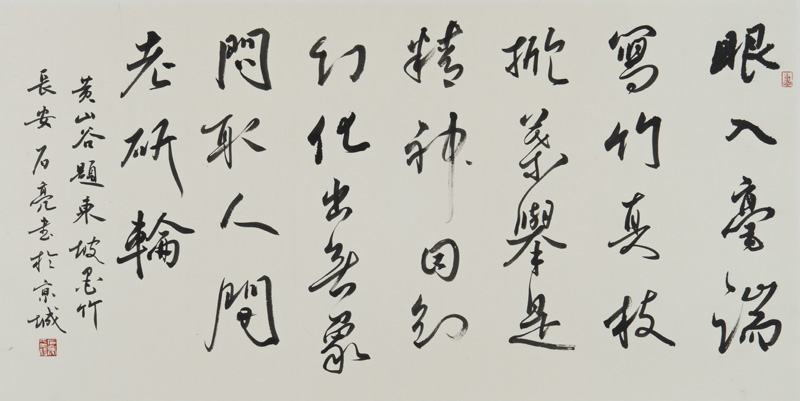 眼入毫端
寫竹真枝
掀葉舉是
精神因知
幻化出無象
問取人間
老斫輪
黃山谷題東坡墨竹
長安石亮書於京城